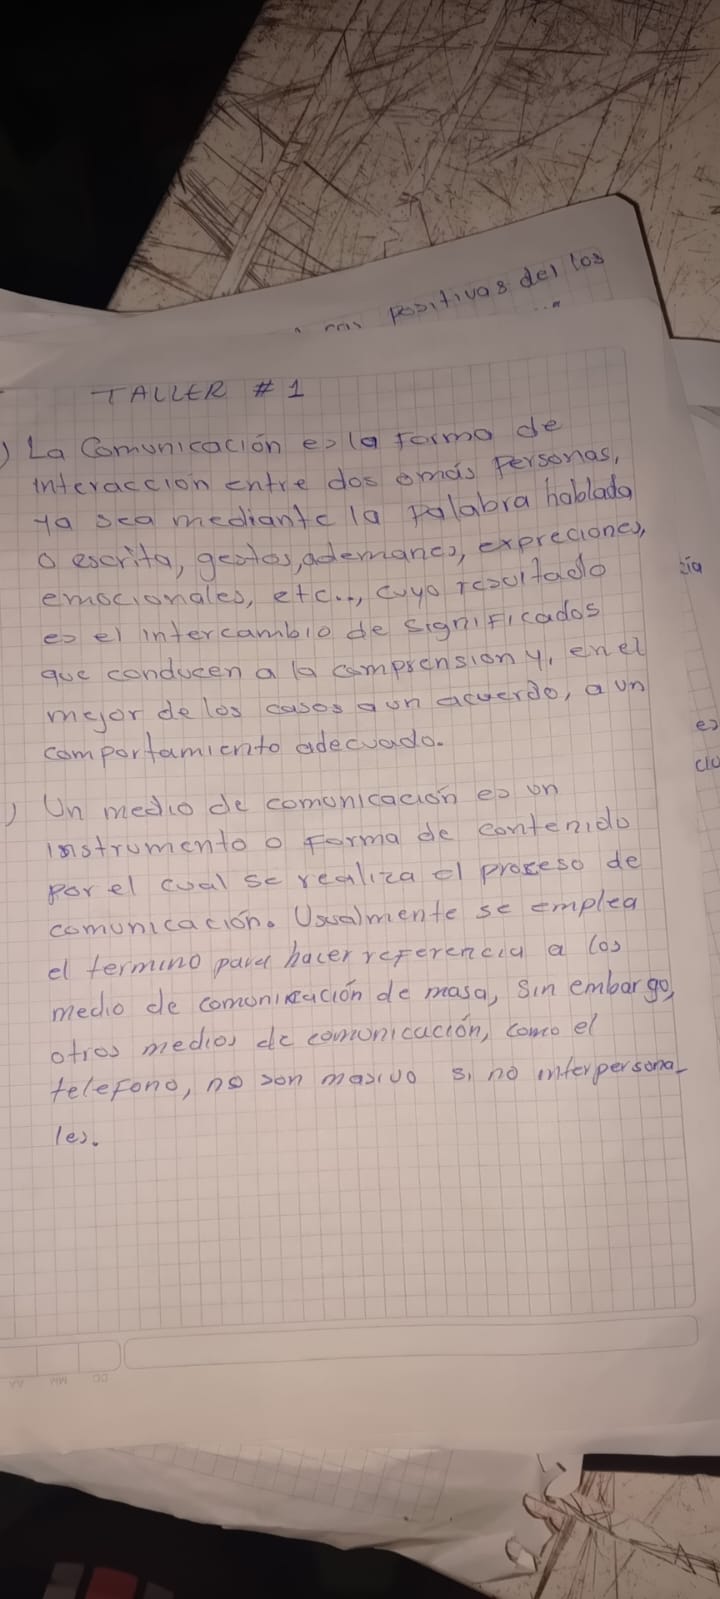 positivas del los
TALLER # 1
) La Comunicación es la forma de
interaccion entre dos omás Personas,
ya sea mediante la Palabra hablada
o escrita, gestos, ademanes, expreciones,
emocionales, etc.., cuyo resultado
es el intercambio de significados
que conducen a la comprension y, en el
mejor de los casos aun acuerdo, a un
comportamiento adecuado.
) Un medio de comunicación es un
instrumento o Forma de contenido
por el cual se realiza el proceso de
comunicación. Usualmente se emplea
el termino para hacer referencia a los
medio de comunicación de masa, sin embargo,
otros medios de comunicación, como el
telefono, no son masivo si no interpersona-
les.
cia
es
DD MM AA